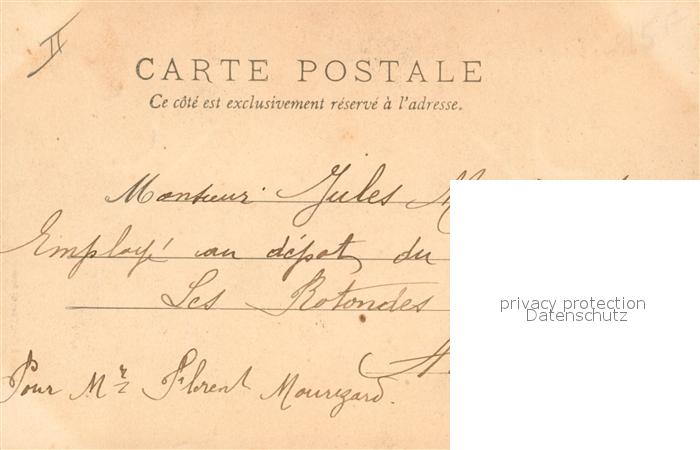 II
CARTE POSTALE
Ce côté est exclusivement réservé à l'adresse.
Monsieur Jules
Employé au dépot, du
Les Rotondes
privacy protection
Datenschutz
Pour Mr Florent Mourizard.